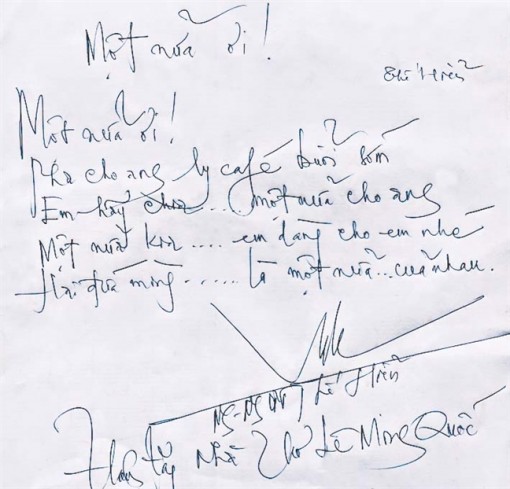 Một nửa ơi!
Thế Hiển
Một nửa ơi!
Pha cho ang ly café buổi sớm
Em hãy chia.... một nửa cho ang
Một nửa kia..... em dàng cho em nhé
Hai đứa mình...... là một nửa... của nhau.
Thế Hiển
tặng Nhà thơ Lê Ming Quốc